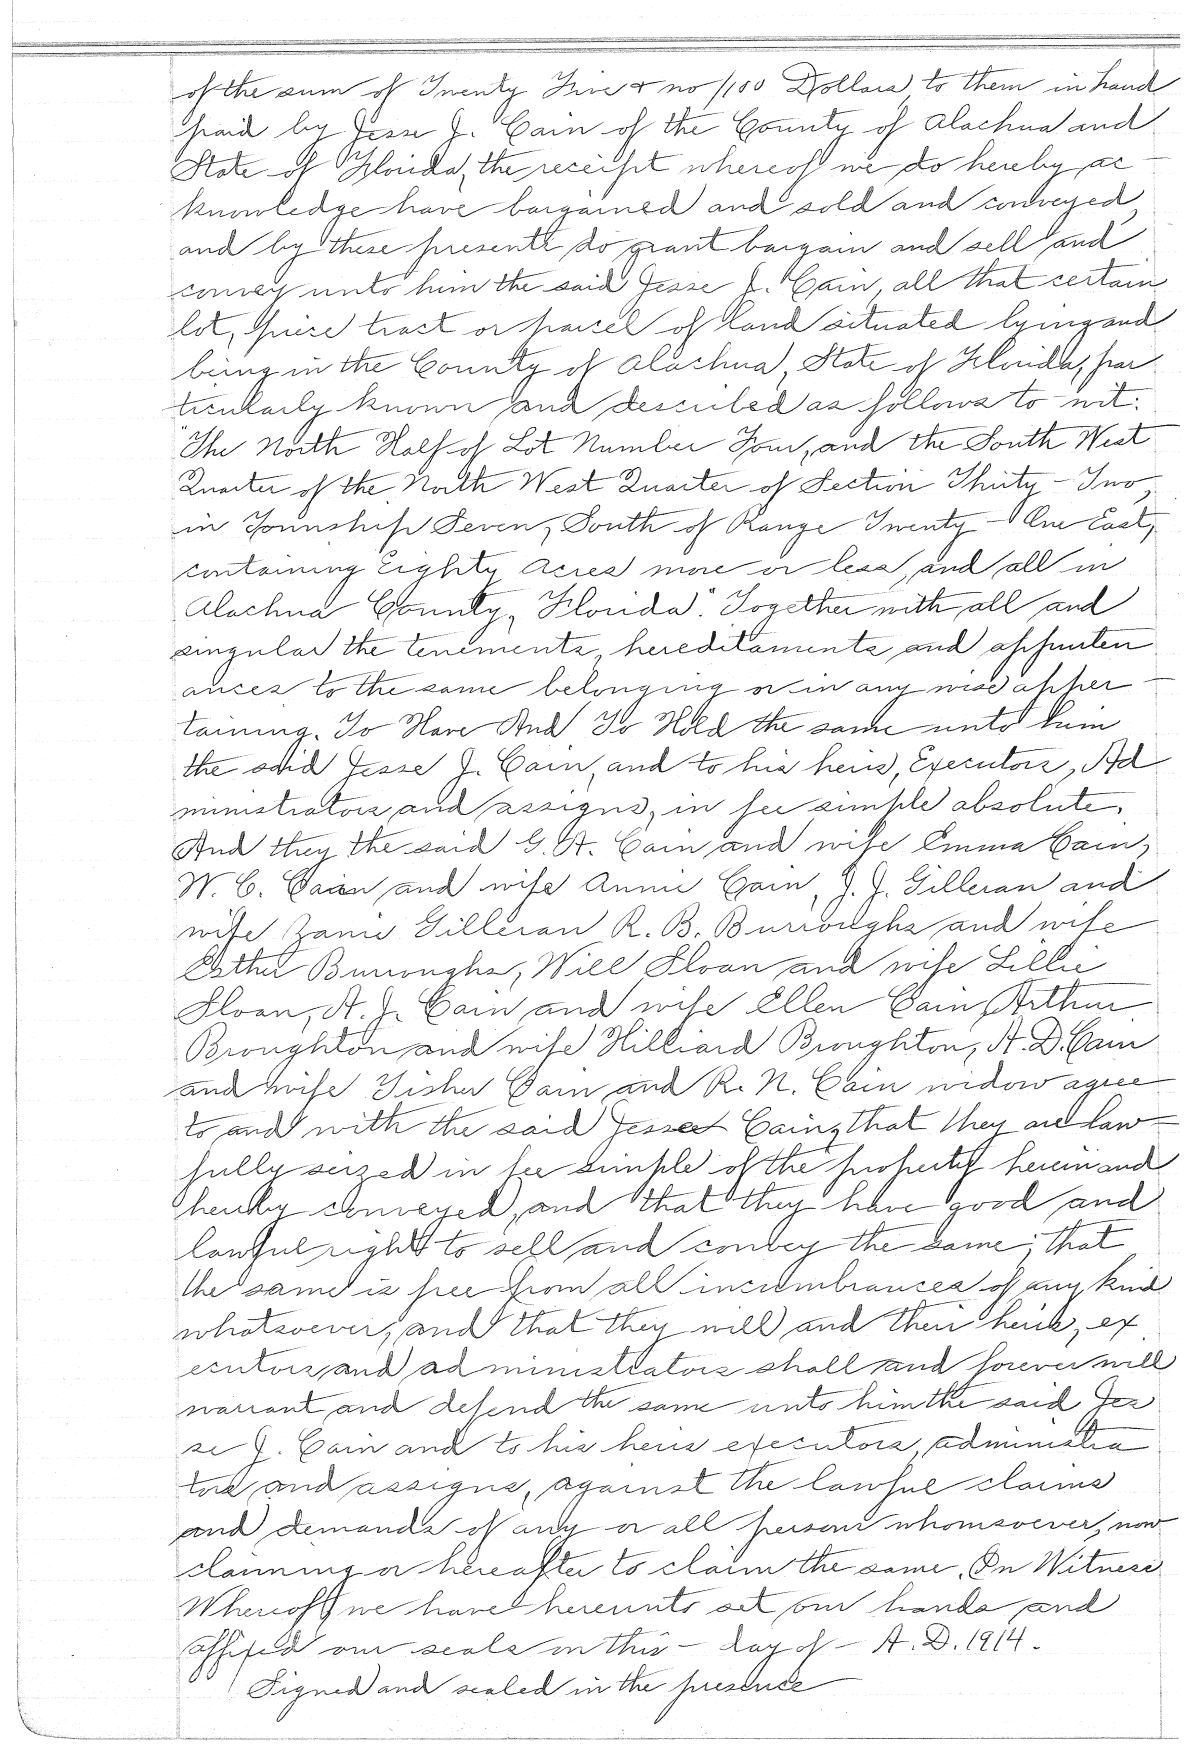 of the sum of Twenty Five & no/100 Dollars, to them in hand
paid by Jesse J. Cain of the County of Alachua and
State of Florida, the receipt whereof we do hereby ac-
knowledge have bargained and sold and conveyed,
and by these presents do grant bargain and sell and
convey unto him the said Jesse J. Cain, all that certain
lot, piece tract or parcel of land situated lying and
being in the County of Alachua, State of Florida, par
ticularly known and described as follows to-wit:
"The North Half of Lot Number Four, and the South West
Quarter of the North West Quarter of Section Thirty-Two,
in Township Seven, South of Range Twenty-One East,
containing Eighty Acres more or less, and all in
Alachua County, Florida". Together with all and
singular the tenements, hereditaments and appurten
ances to the same belonging or in any wise apper-
taining. To Have And To Hold the same unto him
the said Jesse J. Cain, and to his heirs, Executors, Ad
ministrators and assigns, in fee simple absolute.
And they the said G. A. Cain and wife Emma Cain,
W. C. Cain and wife Annie Cain, J. J. Gilleran and
wife Zanie Gilleran R. B. Burroughs and wife
Esther Burroughs, Will Sloan and wife Lillie
Sloan, A. J. Cain and wife Ellen Cain, Arthur
Broughton and wife Hilliard Broughton, A. D. Cain
and wife Tisher Cain and R. N. Cain widow agree
to and with the said Jesse Cain, that they are law-
fully seized in fee simple of the property herein and
hereby conveyed, and that they have good and
lawful right to sell and convey the same; that
the same is free from all incumbrances of any kind
whatsoever, and that they will and their heirs, ex
ecutors and administrators shall and forever will
warrant and defend the same unto him the said Jes
se J. Cain and to his heirs executors, administra
tors and assigns, against the lawful claims
and demands of any or all persons whomsoever, now
claiming or hereafter to claim the same. In Witness
Whereof we have hereunto set our hands and
affixed our seals in this - day of - A. D. 1914.
Signed and sealed in the presence